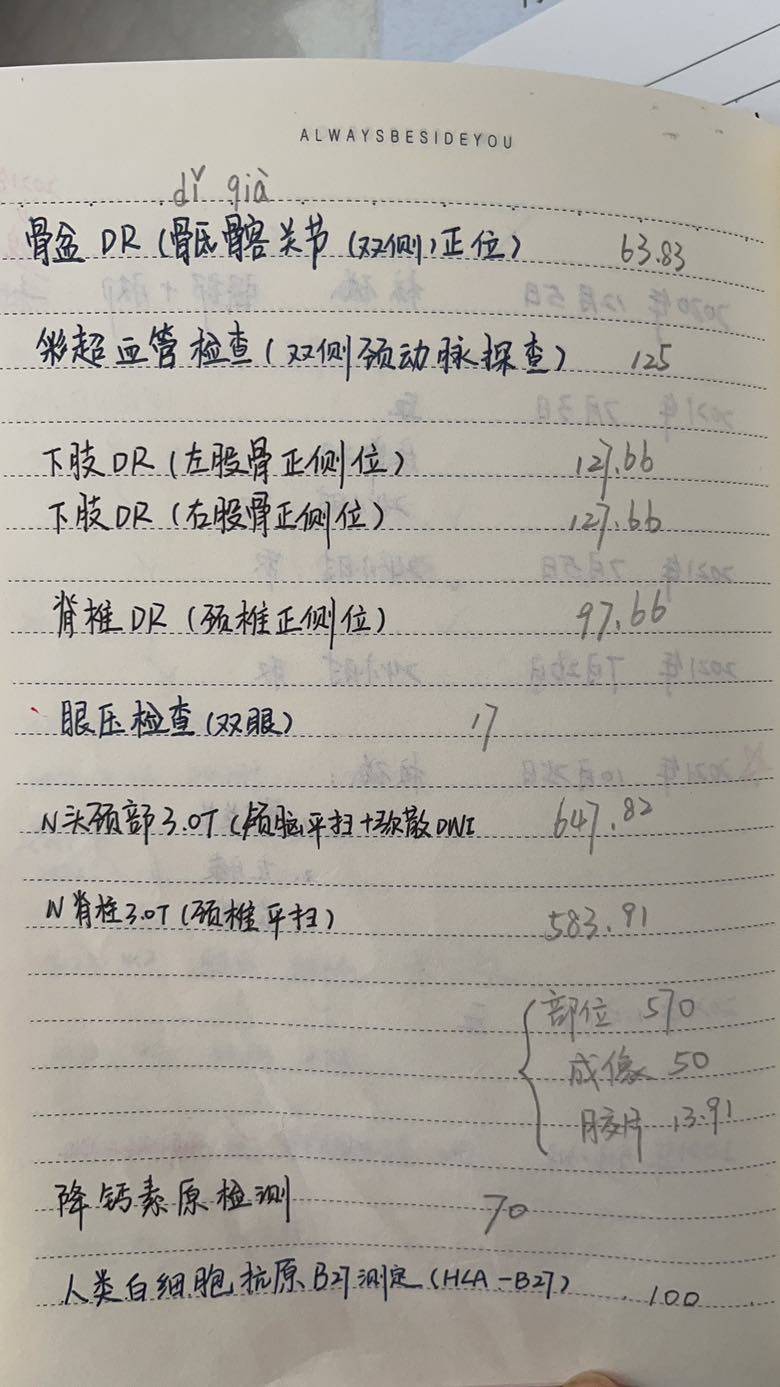 ALWAYSBESIDEYOU
dǐ qià
骨盆 DR (骶髂关节 (双侧)正位) 63.83
彩超血管检查 (双侧颈动脉探查) 125
下肢 DR (左股骨正侧位) 127.66
下肢 DR (右股骨正侧位) 127.66
脊椎 DR (颈椎正侧位) 97.66
眼压检查 (双眼) 17
N 头颈部 3.0T (颅脑平扫+弥散 DWI 647.82
N 脊柱 3.0T (颈椎平扫) 583.91
部位 570
成像 50
胶片 13.91
降钙素原检测 70
人类白细胞抗原 B27 测定 (HLA-B27) 100